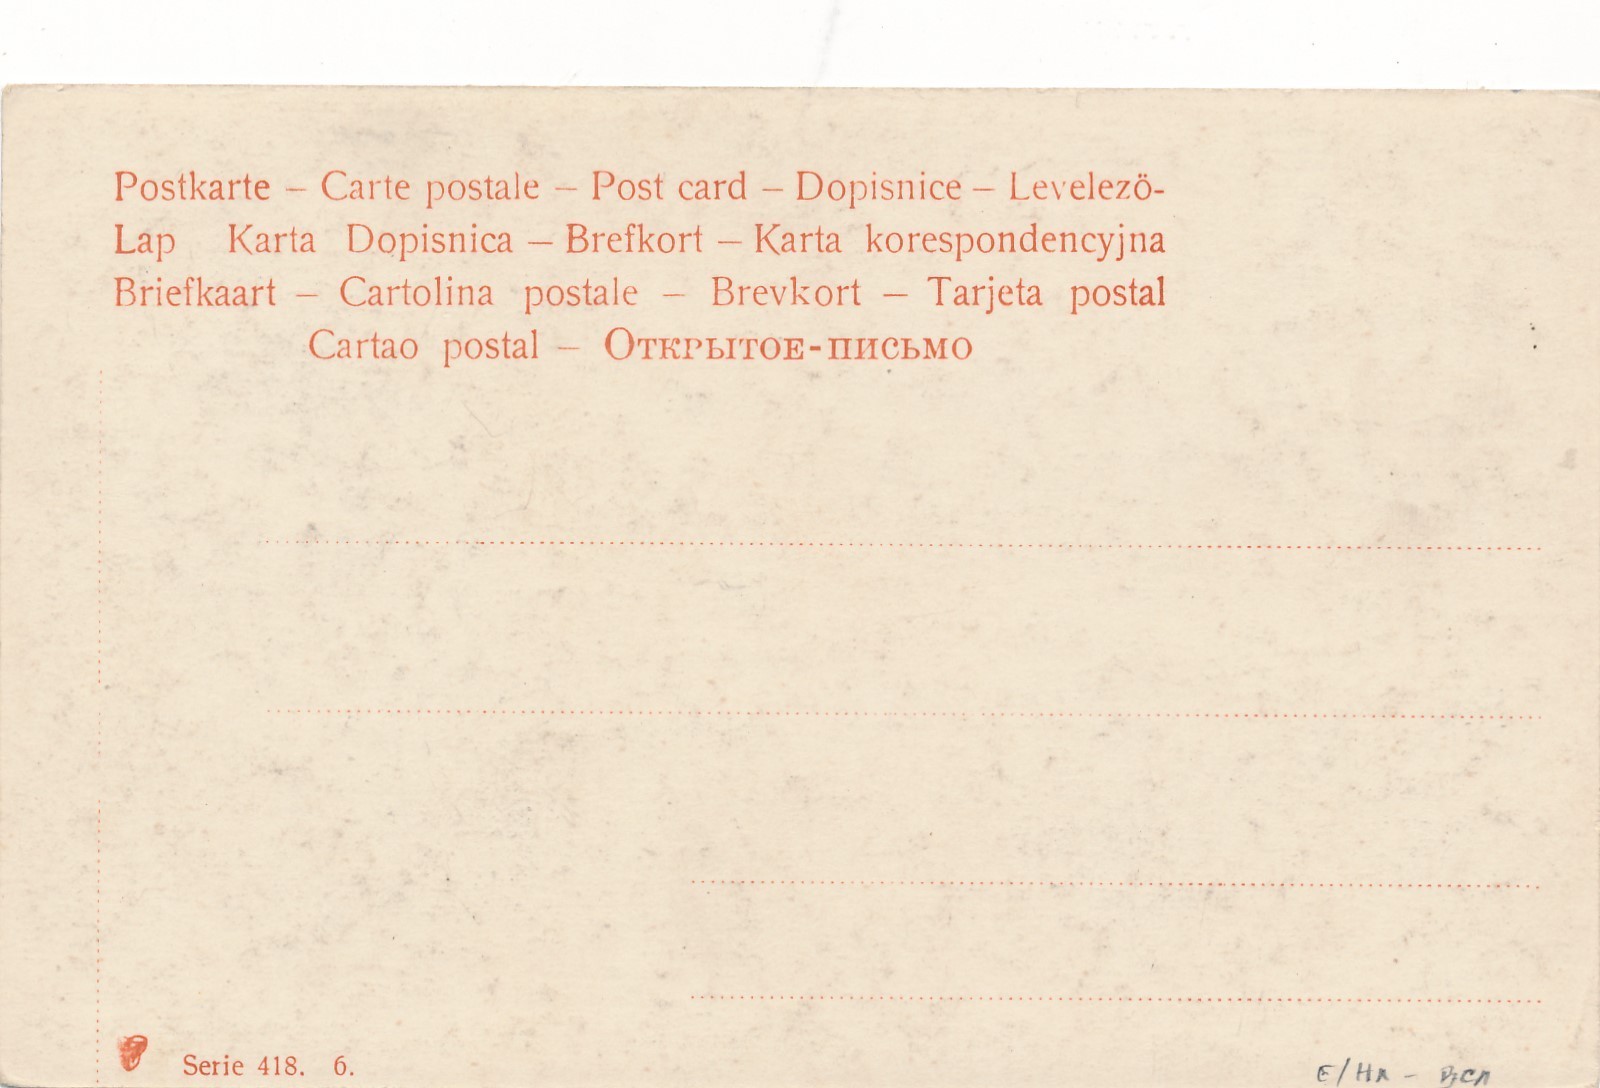 Postkarte – Carte postale – Post card – Dopisnice – Levelező-
Lap Karta Dopisnica – Brefkort – Karta korespondencyjna
Briefkaart – Cartolina postale – Brevkort – Tarjeta postal
Cartao postal – Открытое-письмо
Serie 418. 6.